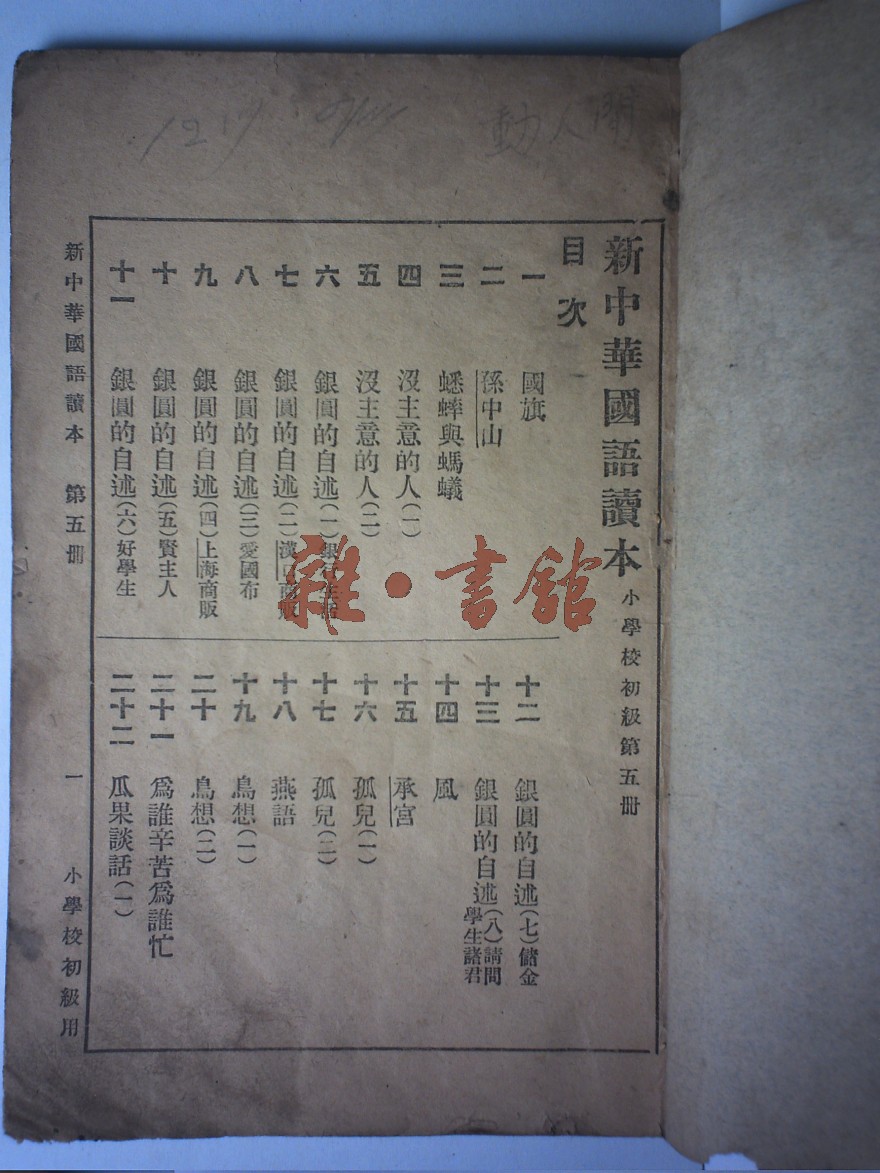 動人開
新中華國語讀本 小學校初級第五冊
目次
一 國旗
二 孫中山
三 蟋蟀與螞蟻
四 沒主意的人(一)
五 沒主意的人(二)
六 銀圓的自述(一)銀
七 銀圓的自述(二)漢口商販
八 銀圓的自述(三)愛國布
九 銀圓的自述(四)上海商販
十 銀圓的自述(五)賢主人
十一 銀圓的自述(六)好學生
十二 銀圓的自述(七)儲金
十三 銀圓的自述(八)請問學生諸君
十四 風
十五 承宮
十六 孤兒(一)
十七 孤兒(二)
十八 燕語
十九 鳥想(一)
二十 鳥想(二)
二十一 爲誰辛苦爲誰忙
二十二 瓜果談話(一)
新中華國語讀本 第五冊 一 小學校初級用
雜·書館